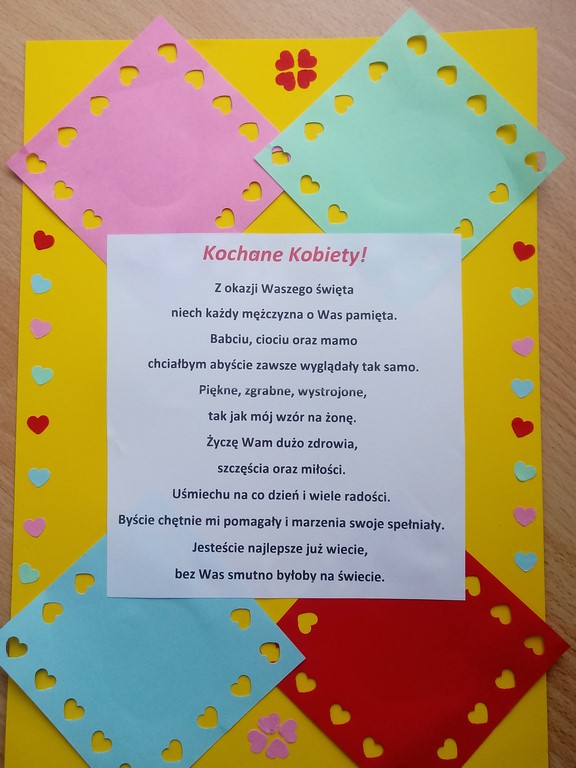 Kochane Kobiety!
Z okazji Waszego święta
niech każdy mężczyzna o Was pamięta.
Babciu, ciociu oraz mamo
chciałbym abyście zawsze wyglądały tak samo.
Piękne, zgrabne, wystrojone,
tak jak mój wzór na żonę.
Życzę Wam dużo zdrowia,
szczęścia oraz miłości.
Uśmiechu na co dzień i wiele radości.
Byście chętnie mi pomagały i marzenia swoje spełniały.
Jesteście najlepsze już wiecie,
bez Was smutno byłoby na świecie.